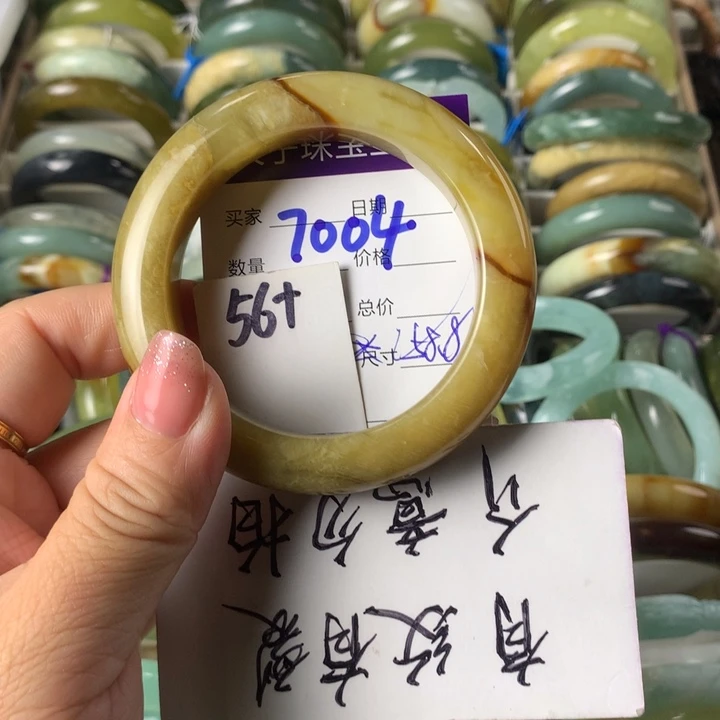 子珠宝
买家 日期
7004
数量 价格
56+
总价
尺寸
有纹有裂
介意勿拍